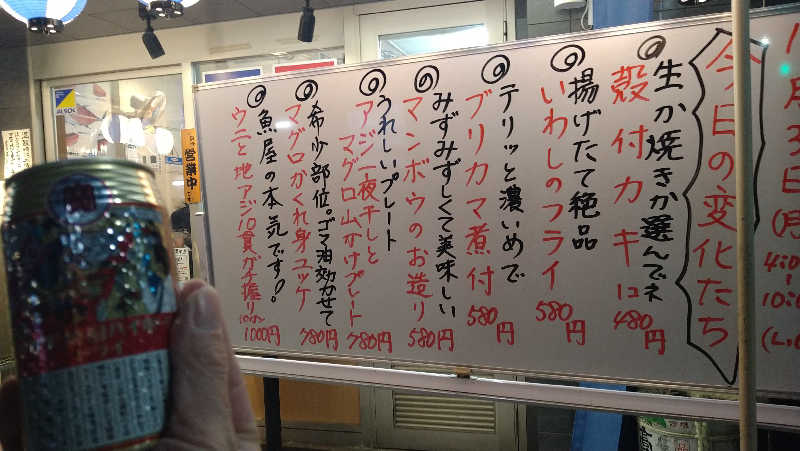 今日の変化たち
生か焼きか選んでネ
殻付カキ1コ 480円
揚げたて絶品
いわしのフライ 580円
テリッと濃いめで
ブリカマ煮付 580円
みずみずしくて美味しい
マンボウのお造り 580円
うれしいプレート
アジ一夜干しと
マグロ山かけプレート 780円
希少部位。ゴマ油効かせて
マグロかくれ身ユッケ 780円
魚屋の本気です!。
ウニと地アジ10貫ガチ握り 1000円
営業中